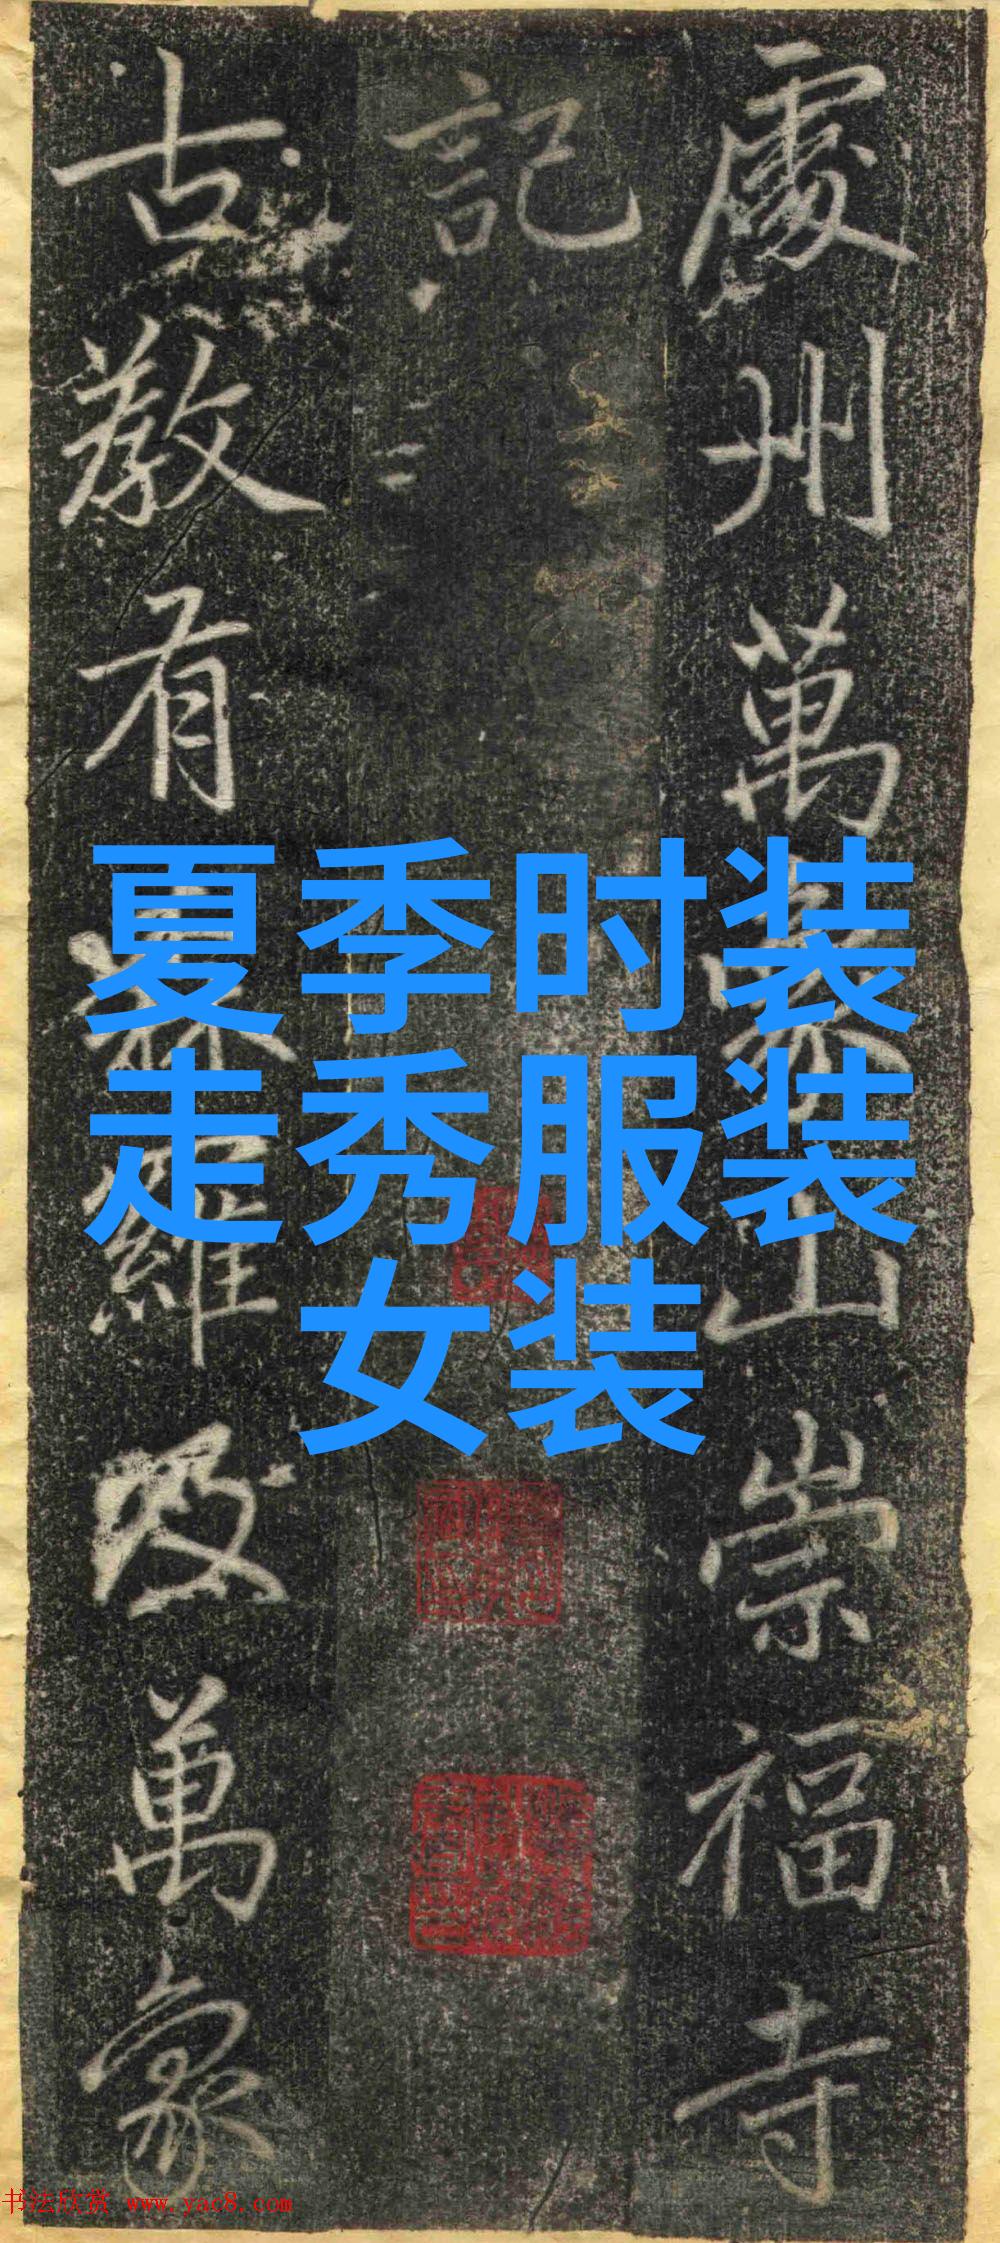 處州萬象山崇福寺
記
古教有森羅及萬象
夏季时装
走秀服装
女装
书法欣赏 www.yac8.com